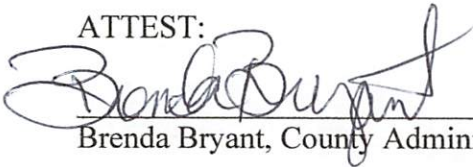 ATTEST:
Brenda Bryant
Brenda Bryant, County Admin